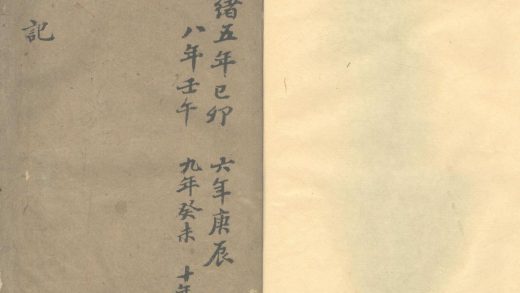 緒五年己卯 六年庚辰
八年壬午 九年癸未 十年
記